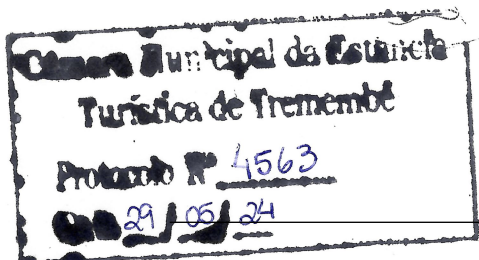 Câmara Municipal da Estância
Turística de Tremembé
Protocolo Nº 4563
29 / 05 / 24